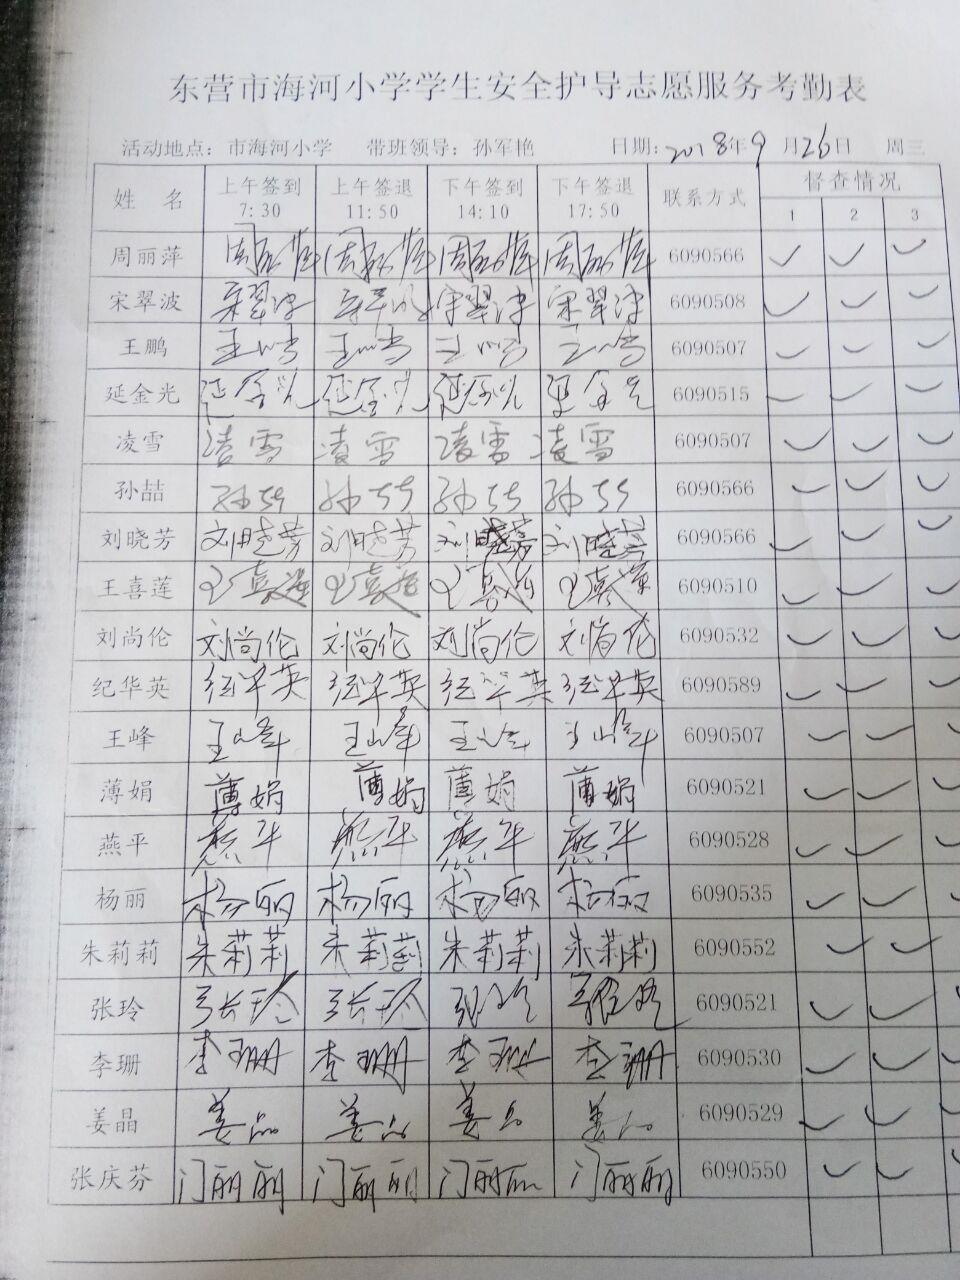 东营市海河小学学生安全护导志愿服务考勤表
活动地点：市海河小学 带班领导：孙军艳 日期：2018年9月26日 周三
姓 名 上午签到 7:30 上午签退 11:50 下午签到 14:10 下午签退 17:50 联系方式 督查情况 1 2 3
周丽萍 周丽萍 周丽萍 周丽萍 周丽萍 6090566 ✓ ✓ ✓
宋翠波 宋翠波 宋翠波 宋翠波 宋翠波 6090508 ✓ ✓ ✓
王鹏 6090507 ✓ ✓ ✓
延金光 延金光 延金光 延金光 延金光 6090515 ✓ ✓ ✓
凌雪 凌雪 凌雪 凌雪 凌雪 6090507 ✓ ✓ ✓
孙喆 孙喆 孙喆 孙喆 孙喆 6090566 ✓ ✓ ✓
刘晓芳 刘晓芳 刘晓芳 刘晓芳 刘晓芳 6090566 ✓ ✓ ✓
王喜莲 王喜莲 王喜莲 王喜莲 王喜莲 6090510 ✓ ✓ ✓
刘尚伦 刘尚伦 刘尚伦 刘尚伦 刘尚伦 6090532 ✓ ✓ ✓
纪华英 纪华英 纪华英 纪华英 纪华英 6090589 ✓ ✓ ✓
王峰 王峰 王峰 王峰 王峰 6090507 ✓ ✓ ✓
薄娟 薄娟 薄娟 薄娟 薄娟 6090521 ✓ ✓ ✓
燕平 燕平 燕平 燕平 燕平 6090528 ✓ ✓ ✓
杨丽 杨丽 杨丽 杨丽 杨丽 6090535 ✓ ✓ ✓
朱莉莉 朱莉莉 朱莉莉 朱莉莉 朱莉莉 6090552 ✓ ✓ ✓
张玲 张玲 张玲 张玲 张玲 6090521 ✓ ✓ ✓
李珊 李珊 李珊 李珊 李珊 6090530 ✓ ✓ ✓
姜晶 姜晶 姜晶 姜晶 姜晶 6090529 ✓ ✓ ✓
张庆芬 门丽丽 门丽丽 门丽丽 门丽丽 6090550 ✓ ✓ ✓